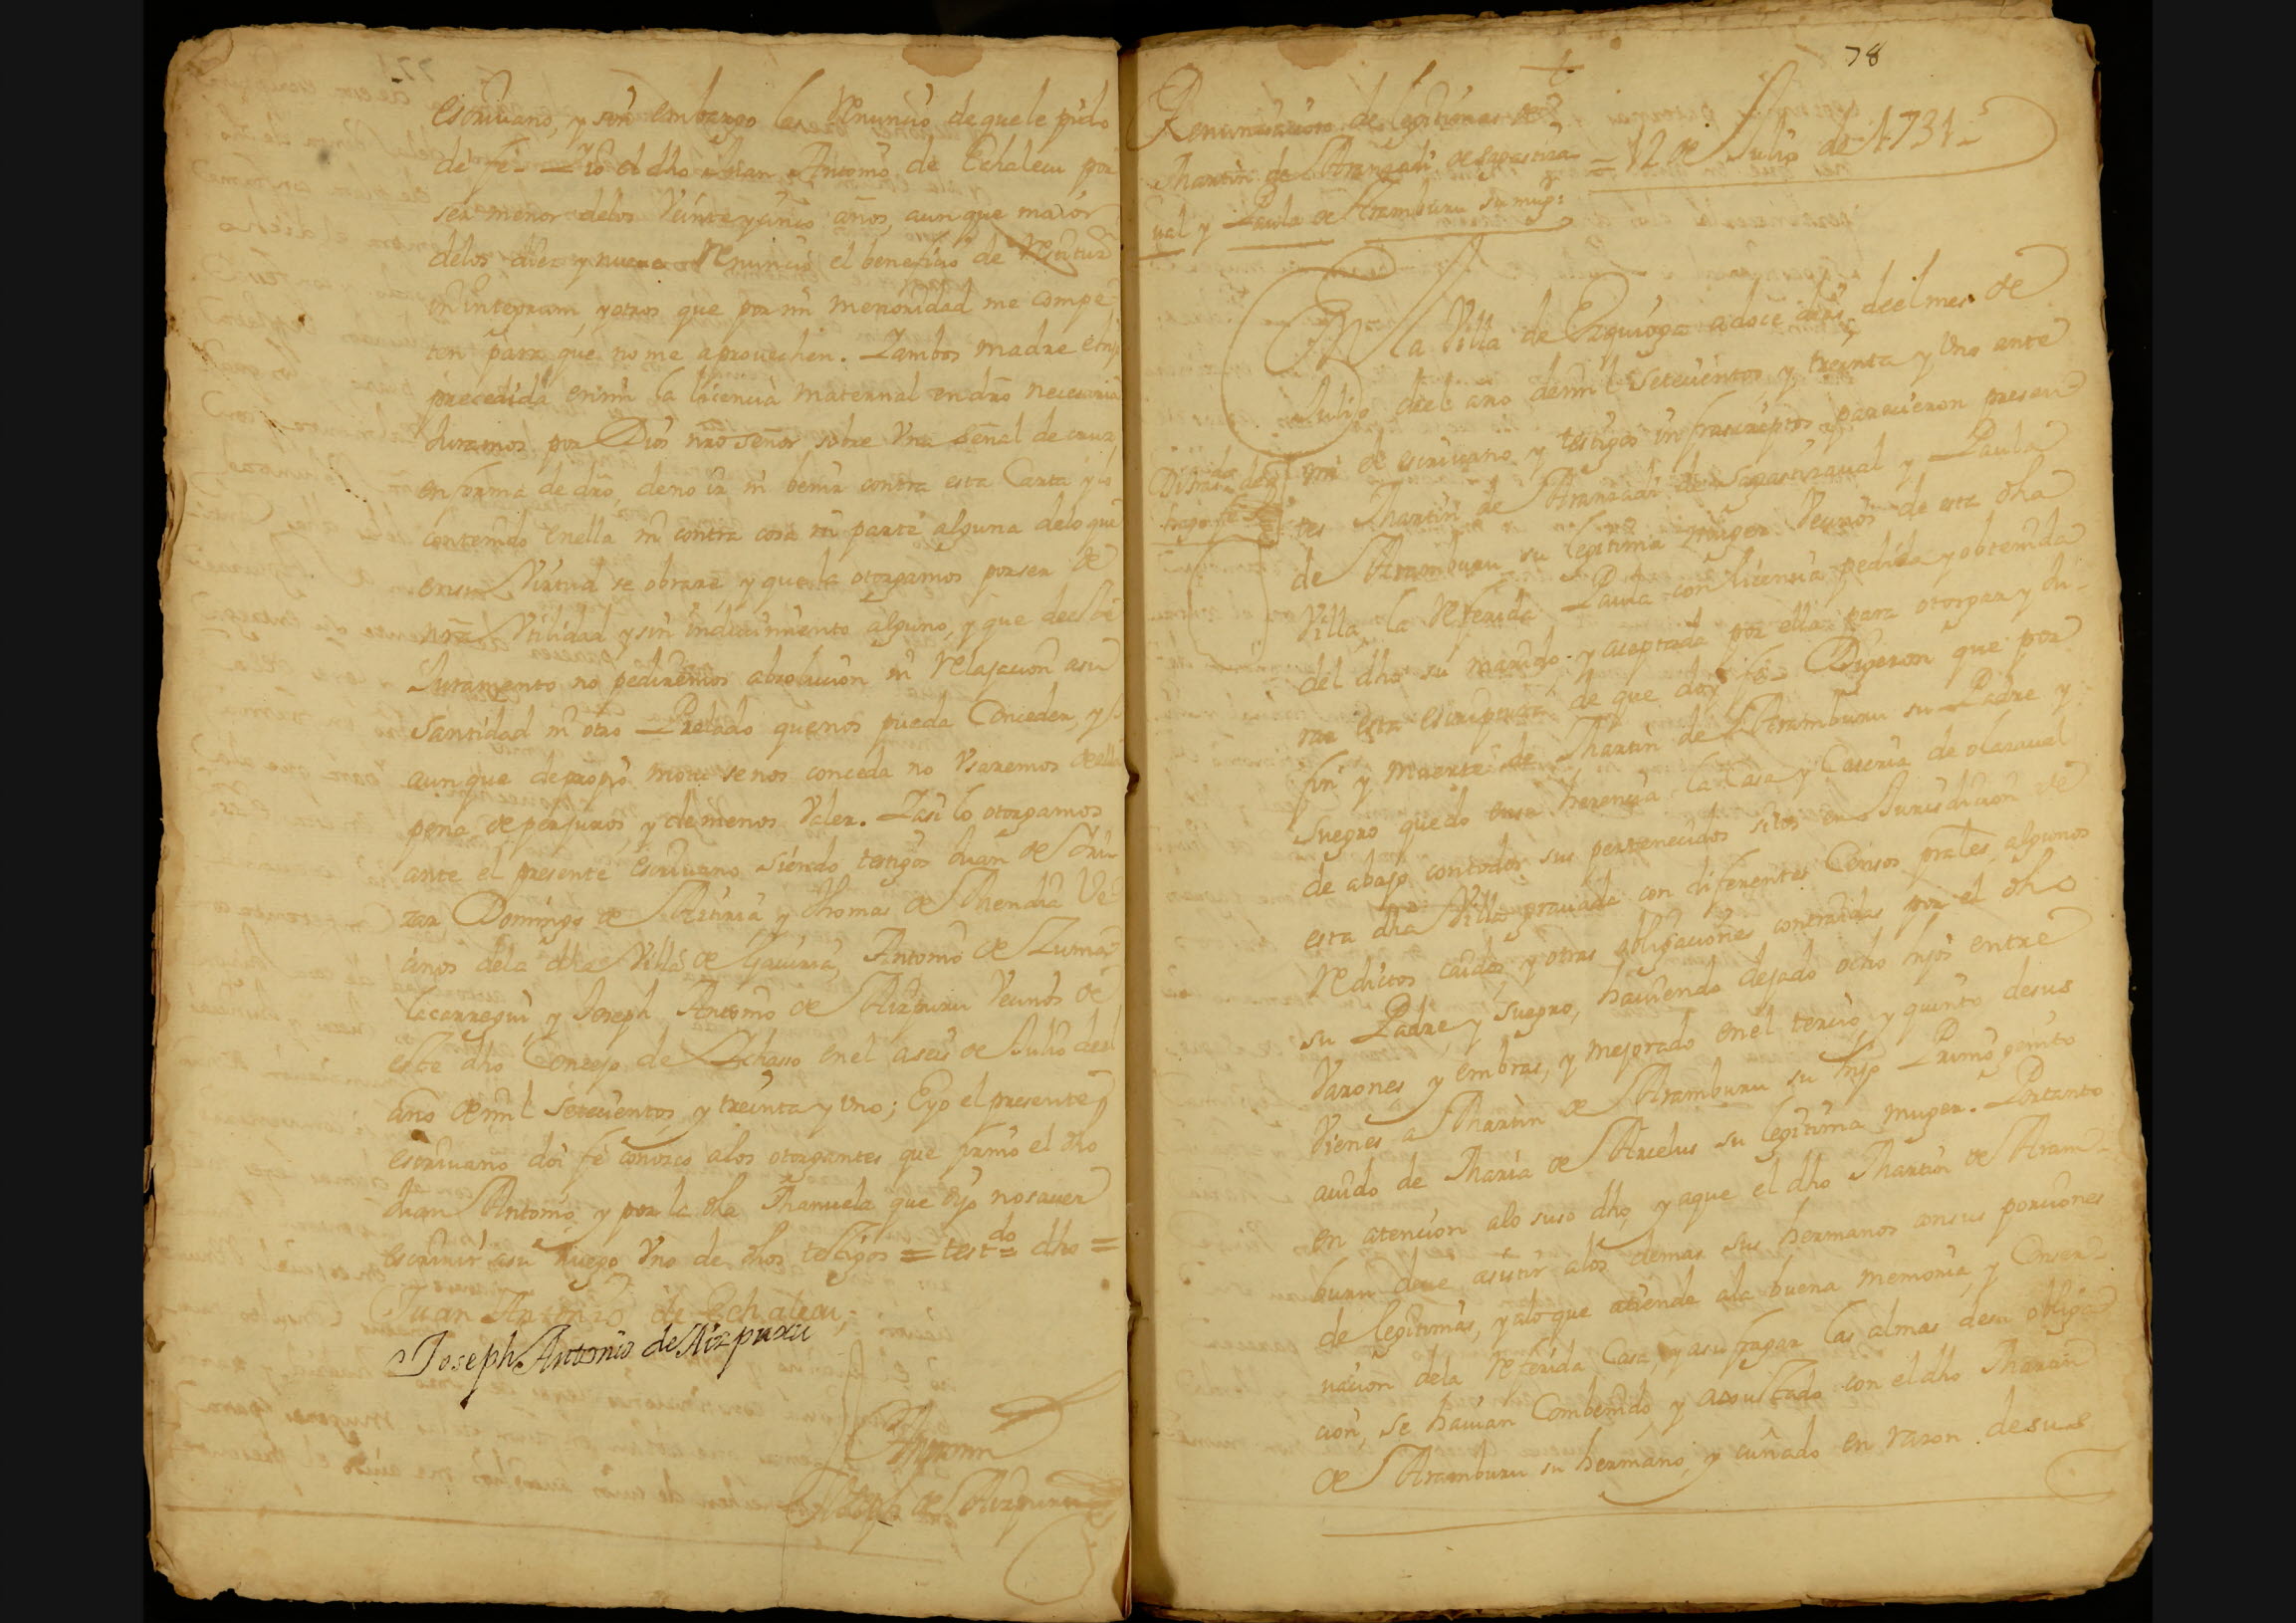 escriuano, y sin embargo las renuncio de que le pido
de fe. Y io el dho Juan Antonio de Echalecu por
ser menor delos Veinte y cinco años, aunque maior
delos diez y nueve Renuncio el beneficio de restitucion
in integrum, y otros que por mi menoridad me compe-
ten para que no me aprouechen. Y ambos madre e hijo
precedida en mi la licencia maternal en dro necesaria
Juramos por Dios nro señor sobre Vna señal de cruz
en forma de dro, de no ir ni benir contra esta Carta y lo
contenido en ella ni contra cosa ni parte alguna delo que
en su Virtud se obrare, y que la otorgamos por ser de
nra Vtilidad y sin inducimiento alguno, y que de este
Juramento no pediremos absolucion ni Relajacion a su
Santidad ni otro Prelado que nos pueda Conceder, y
aunque de propio motu se nos conceda no Vsaremos de ella
pena de perjuros, y de menos Valer. Y asi lo otorgamos
ante el presente escriuano siendo testigos Juan de
zar Domingo de Astiria y Thomas de Mendia Ve-
cinos dela dha Villa de Gauiria, Antonio de Zuma-
lacarregui, y Joseph Antonio de Aizpuru Vecinos de
este dho Concejo de Ychaso en el a seis de Julio del
año de mil setecientos, y treinta y Vno; E yo el presente
escriuano doi fe conosco alos otorgantes que firmo el dho
Juan Antonio, y por la dha Manuela que dijo no sauer
escriuir a su ruego Vno de dhos testigos = test.do = dho =
Juan Antonio de Echalecu,
Joseph Antonio de Aizpuru
Ante mi
Joseph de Aizpuru
78
Renunciacion de legitimas de
Martin de Aranzadi de Sagastiza-
ual y Paula de Aramburu su mug:
= 12 de Julio de 1731 =
En la Villa de Ezquioga a doce dias deel mes de
Julio del año de mil setecientos, y treinta y Vno ante
mi el escriuano y testigos infrascriptos parecieron presen-
tes Martin de Aranzadi de Sagastizaual y Paula
de Aramburu su legitima muger Vecinos de esta dha
Villa, la referida Paula con licencia pedida y obtenida
del dho su marido y aceptada por ella para otorgar y Ju-
rar esta escriptura de que doy fe. Digeron que por
fin y muerte de Martin de Aramburu su Padre y
Suegro quedo en su herencia la Casa y Caseria de olazaual
de abajo con todos sus pertenecidos sitos en Jurisdicion de
esta dha Villa grauada con diferentes Censos prales, algunos
reditos caidos, y otras obligaciones contraidas por el dho
su Padre, y Suegro, hauiendo dejado ocho hijos entre
Varones y embras, y mejorado en el tercio y quinto de sus
Vienes a Martin de Aramburu su hijo Primo genito
auido de Maria de Arcelus su legitima muger. Por tanto
en atencion alo suso dho, y a que el dho Martin de Aram-
buru deue asistir alos demas sus hermanos con sus porciones
de legitimas, y alo que atiende ala buena memoria, y Conser-
uacion dela referida Casa, y a sufragar las almas de su obliga-
cion, se hauian Combenido, y ajustado con el dho Martin
de Aramburu su hermano, y cuñado en razon de sus